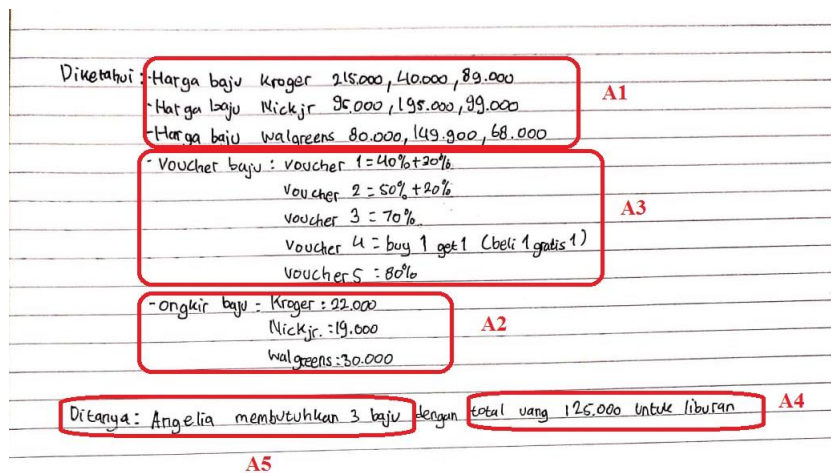 Diketahui : - Harga baju Kroger 215.000, 40.000, 89.000
A1
- Harga baju Nickjr 95.000, 195.000, 99.000
- Harga baju Walgreens 80.000, 149.900, 68.000
- Voucher baju : voucher 1 = 40% + 20%
voucher 2 = 50% + 20%
A3
voucher 3 = 70%
voucher 4 = buy 1 get 1 (beli 1 gratis 1)
voucher 5 = 80%
- ongkir baju = Kroger : 22.000
A2
Nickjr. : 19.000
walgreens : 30.000
Ditanya : Angelia membutuhkan 3 baju dengan total uang 125.000 untuk liburan
A4
A5